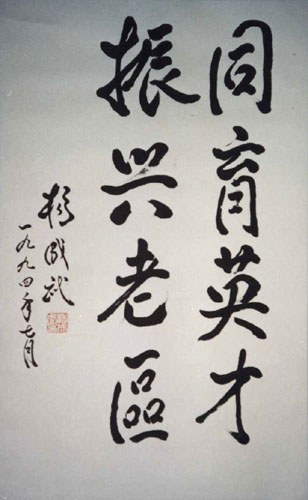 同育英才
振兴老區
杨成武
一九九四年七月